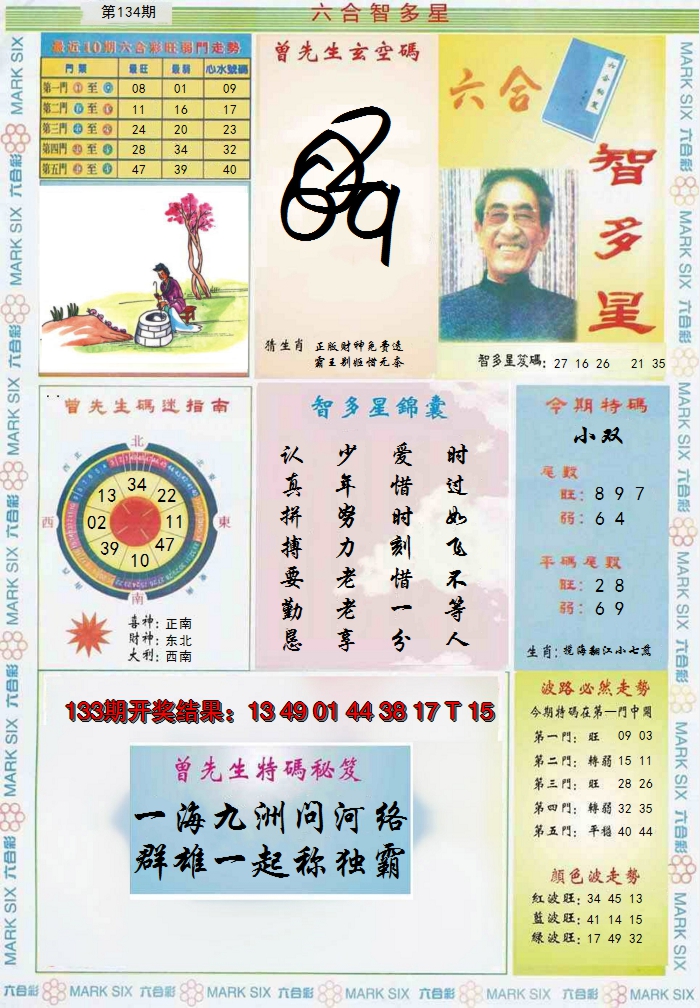 第134期
六合智多星
最近10期六合彩旺弱門走勢
門票 最旺 最弱 心水號碼
第一門 至 08 01 09
第二門 至 11 16 17
第三門 至 24 20 23
第四門 至 28 34 32
第五門 至 47 39 40
曾先生玄空碼
猜生肖 正版财神免费送
霸王别姬惜无奈
六合
智多星
智多星笈碼: 27 16 26 21 35
曾先生碼迷指南
北
西
東
南
34
13 22
02 11
39 47
10
喜神: 正南
财神: 东北
大利: 西南
智多星錦囊
时过如飞不等人
爱惜时刻惜一分
少年努力老老享
认真拼搏要勤恳
今期特碼
小双
尾數
旺: 8 9 7
弱: 6 4
平碼尾數
旺: 2 8
弱: 6 9
生肖: 搅海翻江小七煞
133期开奖结果: 13 49 01 44 38 17 T 15
曾先生特碼秘笈
一海九洲问河络
群雄一起称独霸
波路必然走勢
今期特碼在第一門中開
第一門: 旺 09 03
第二門: 轉弱 15 11
第三門: 旺 28 26
第四門: 轉弱 32 35
第五門: 平穩 40 44
顏色波走勢
紅波旺: 34 45 13
藍波旺: 41 14 15
綠波旺: 17 49 32
MARK SIX 六合彩